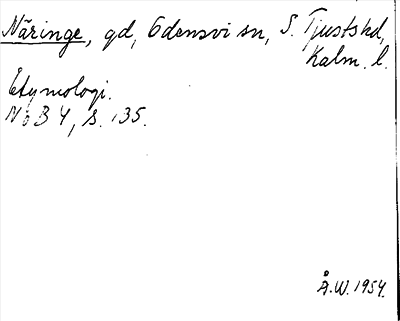 Näringe, gd, Odensvi sn, S. Tjusts hd,
Kalm. l.
Etymologi.
NoB 4, s. 135.
Å.W. 1954.